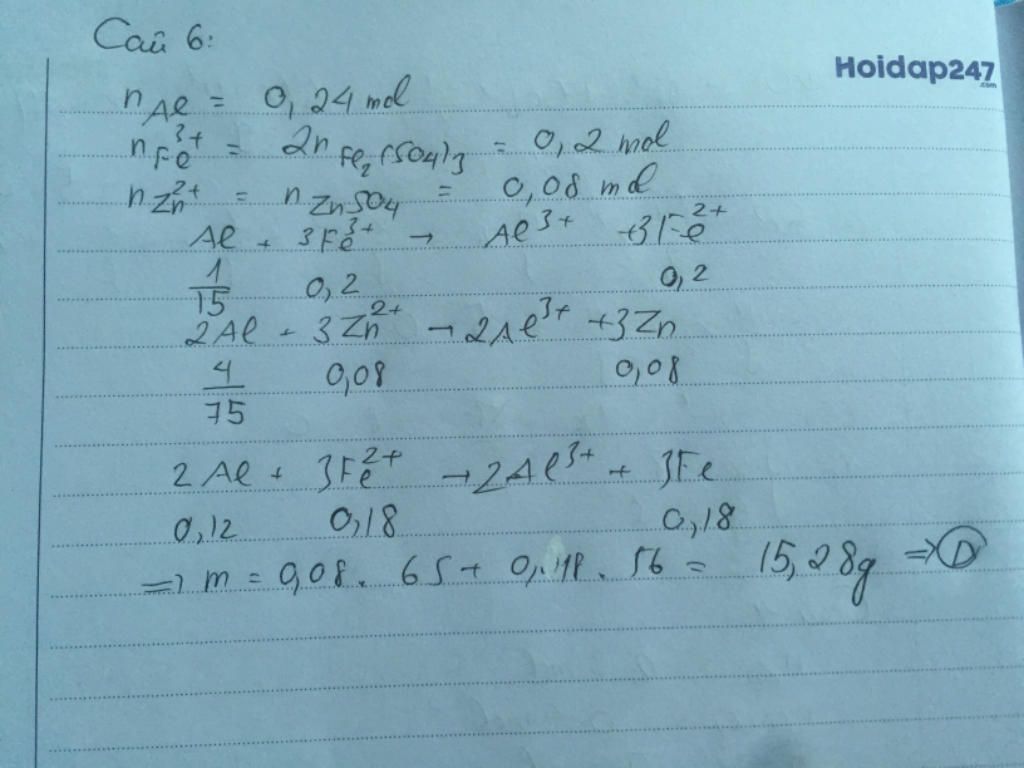 Câu 6:
Hoidap247
.com
n Al = 0,24 mol
n Fe³⁺ = 2n Fe₂(SO₄)₃ = 0,2 mol
n Zn²⁺ = n ZnSO₄ = 0,08 mol
Al + 3Fe³⁺ → Al³⁺ +3Fe²⁺
1/15 0,2 0,2
2Al + 3Zn²⁺ → 2Al³⁺ +3Zn
4/75 0,08 0,08
2Al + 3Fe²⁺ → 2Al³⁺ + 3Fe
0,12 0,18 0,18
=> m = 0,08. 65 + 0,18. 56 = 15,28g => D